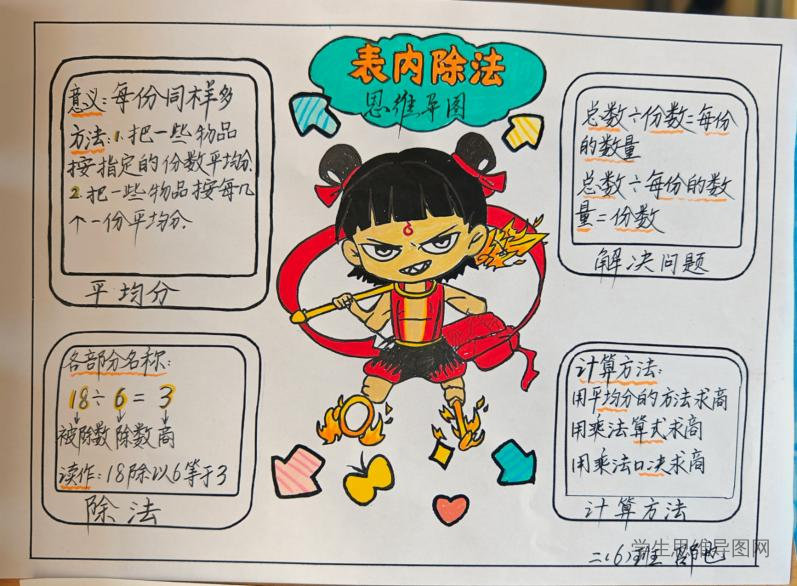 表内除法
思维导图
意义:每份同样多
方法:1.把一些物品
按指定的份数平均分.
2.把一些物品按每几
个一份平均分.
平均分
总数÷份数=每份
的数量
总数÷每份的数
量=份数
解决问题
各部分名称:
18÷6=3
被除数 除数 商
读作:18除以6等于3
除法
计算方法:
用平均分的方法求商
用乘法算式求商
用乘法口决求商
计算方法
二(6)班
学生思维导图网